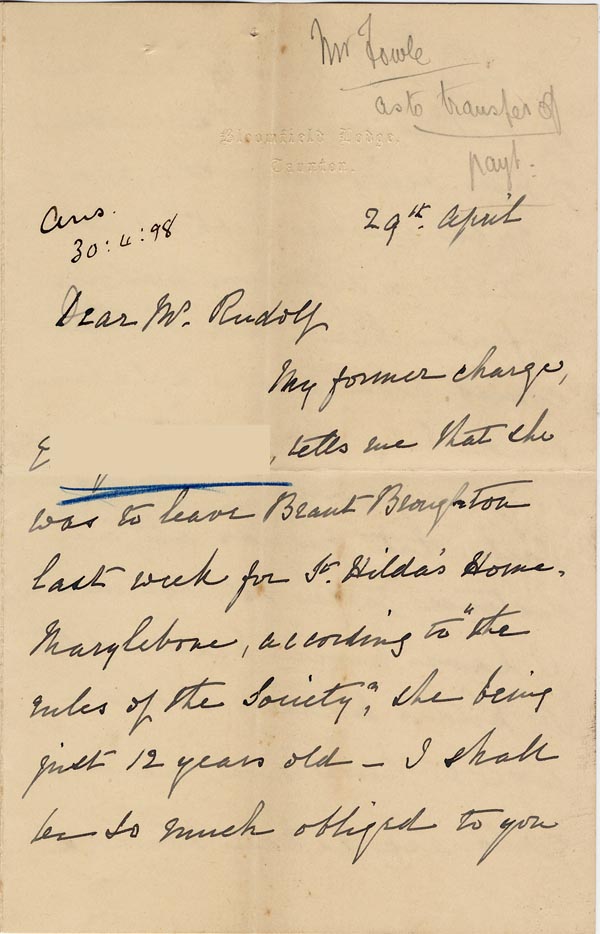 Mr Fowle
as to transfer of
payt.
Bloomfield Lodge,
Taunton.
Ans.
30:4:98
29th. April
Dear Mr. Rudolf
My former charge,
E , tells me that she
was to leave Brant Broughton
last week for St. Hilda's Home,
Marylebone, according to "the
rules of the Society", she being
just 12 years old - I shall
be so much obliged to you